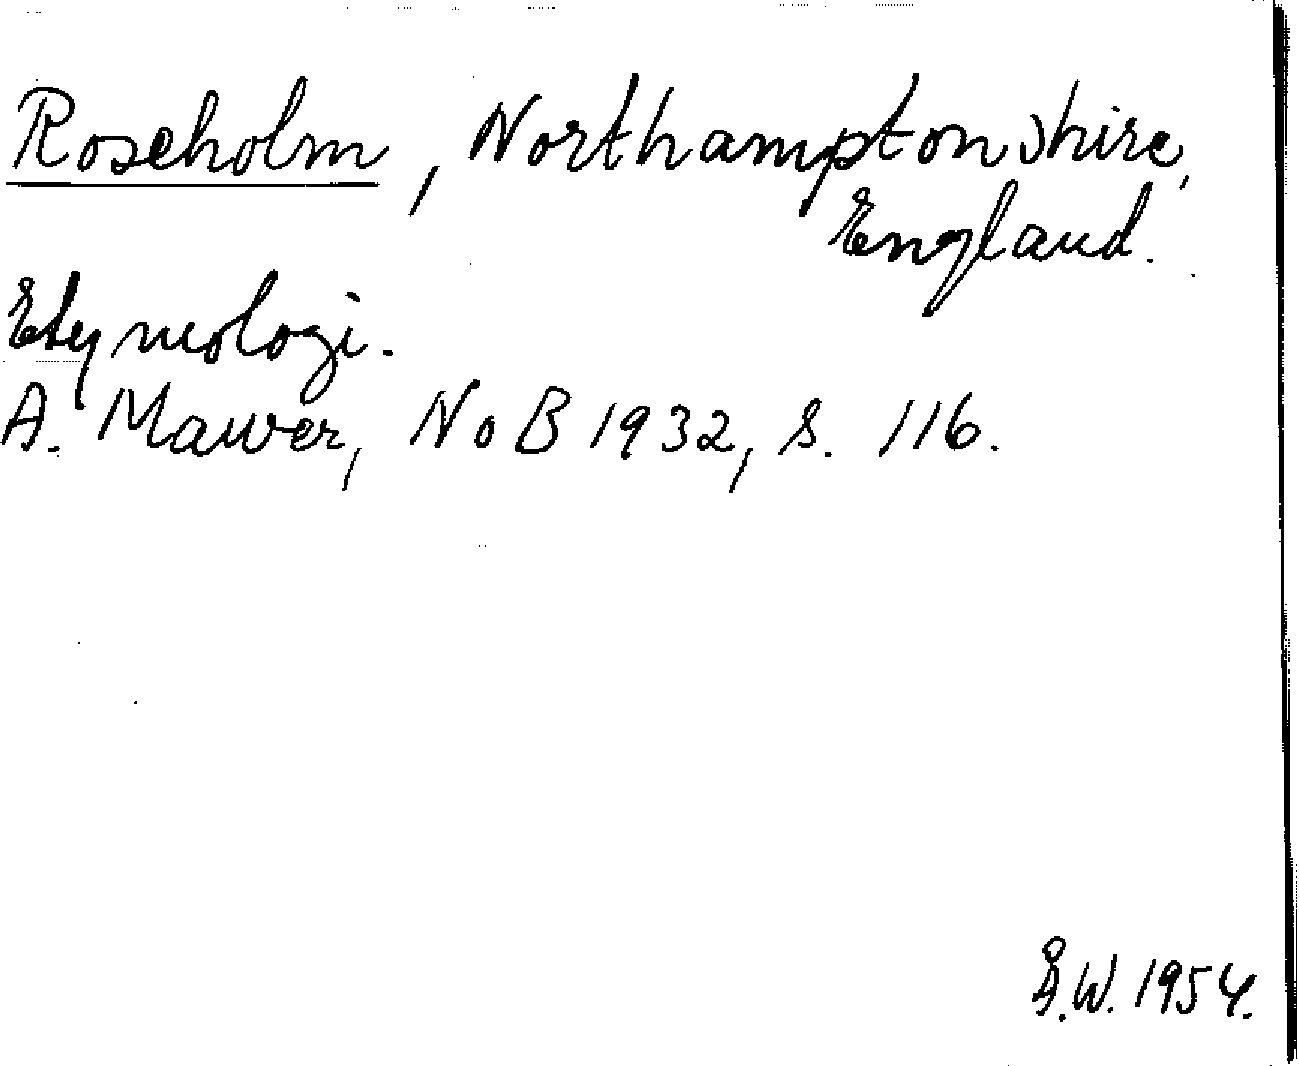 Roseholm, Northamptonshire,
England.
Etymologi.
A. Mawer, NoB 1932, s. 116.
Å.W. 1954.